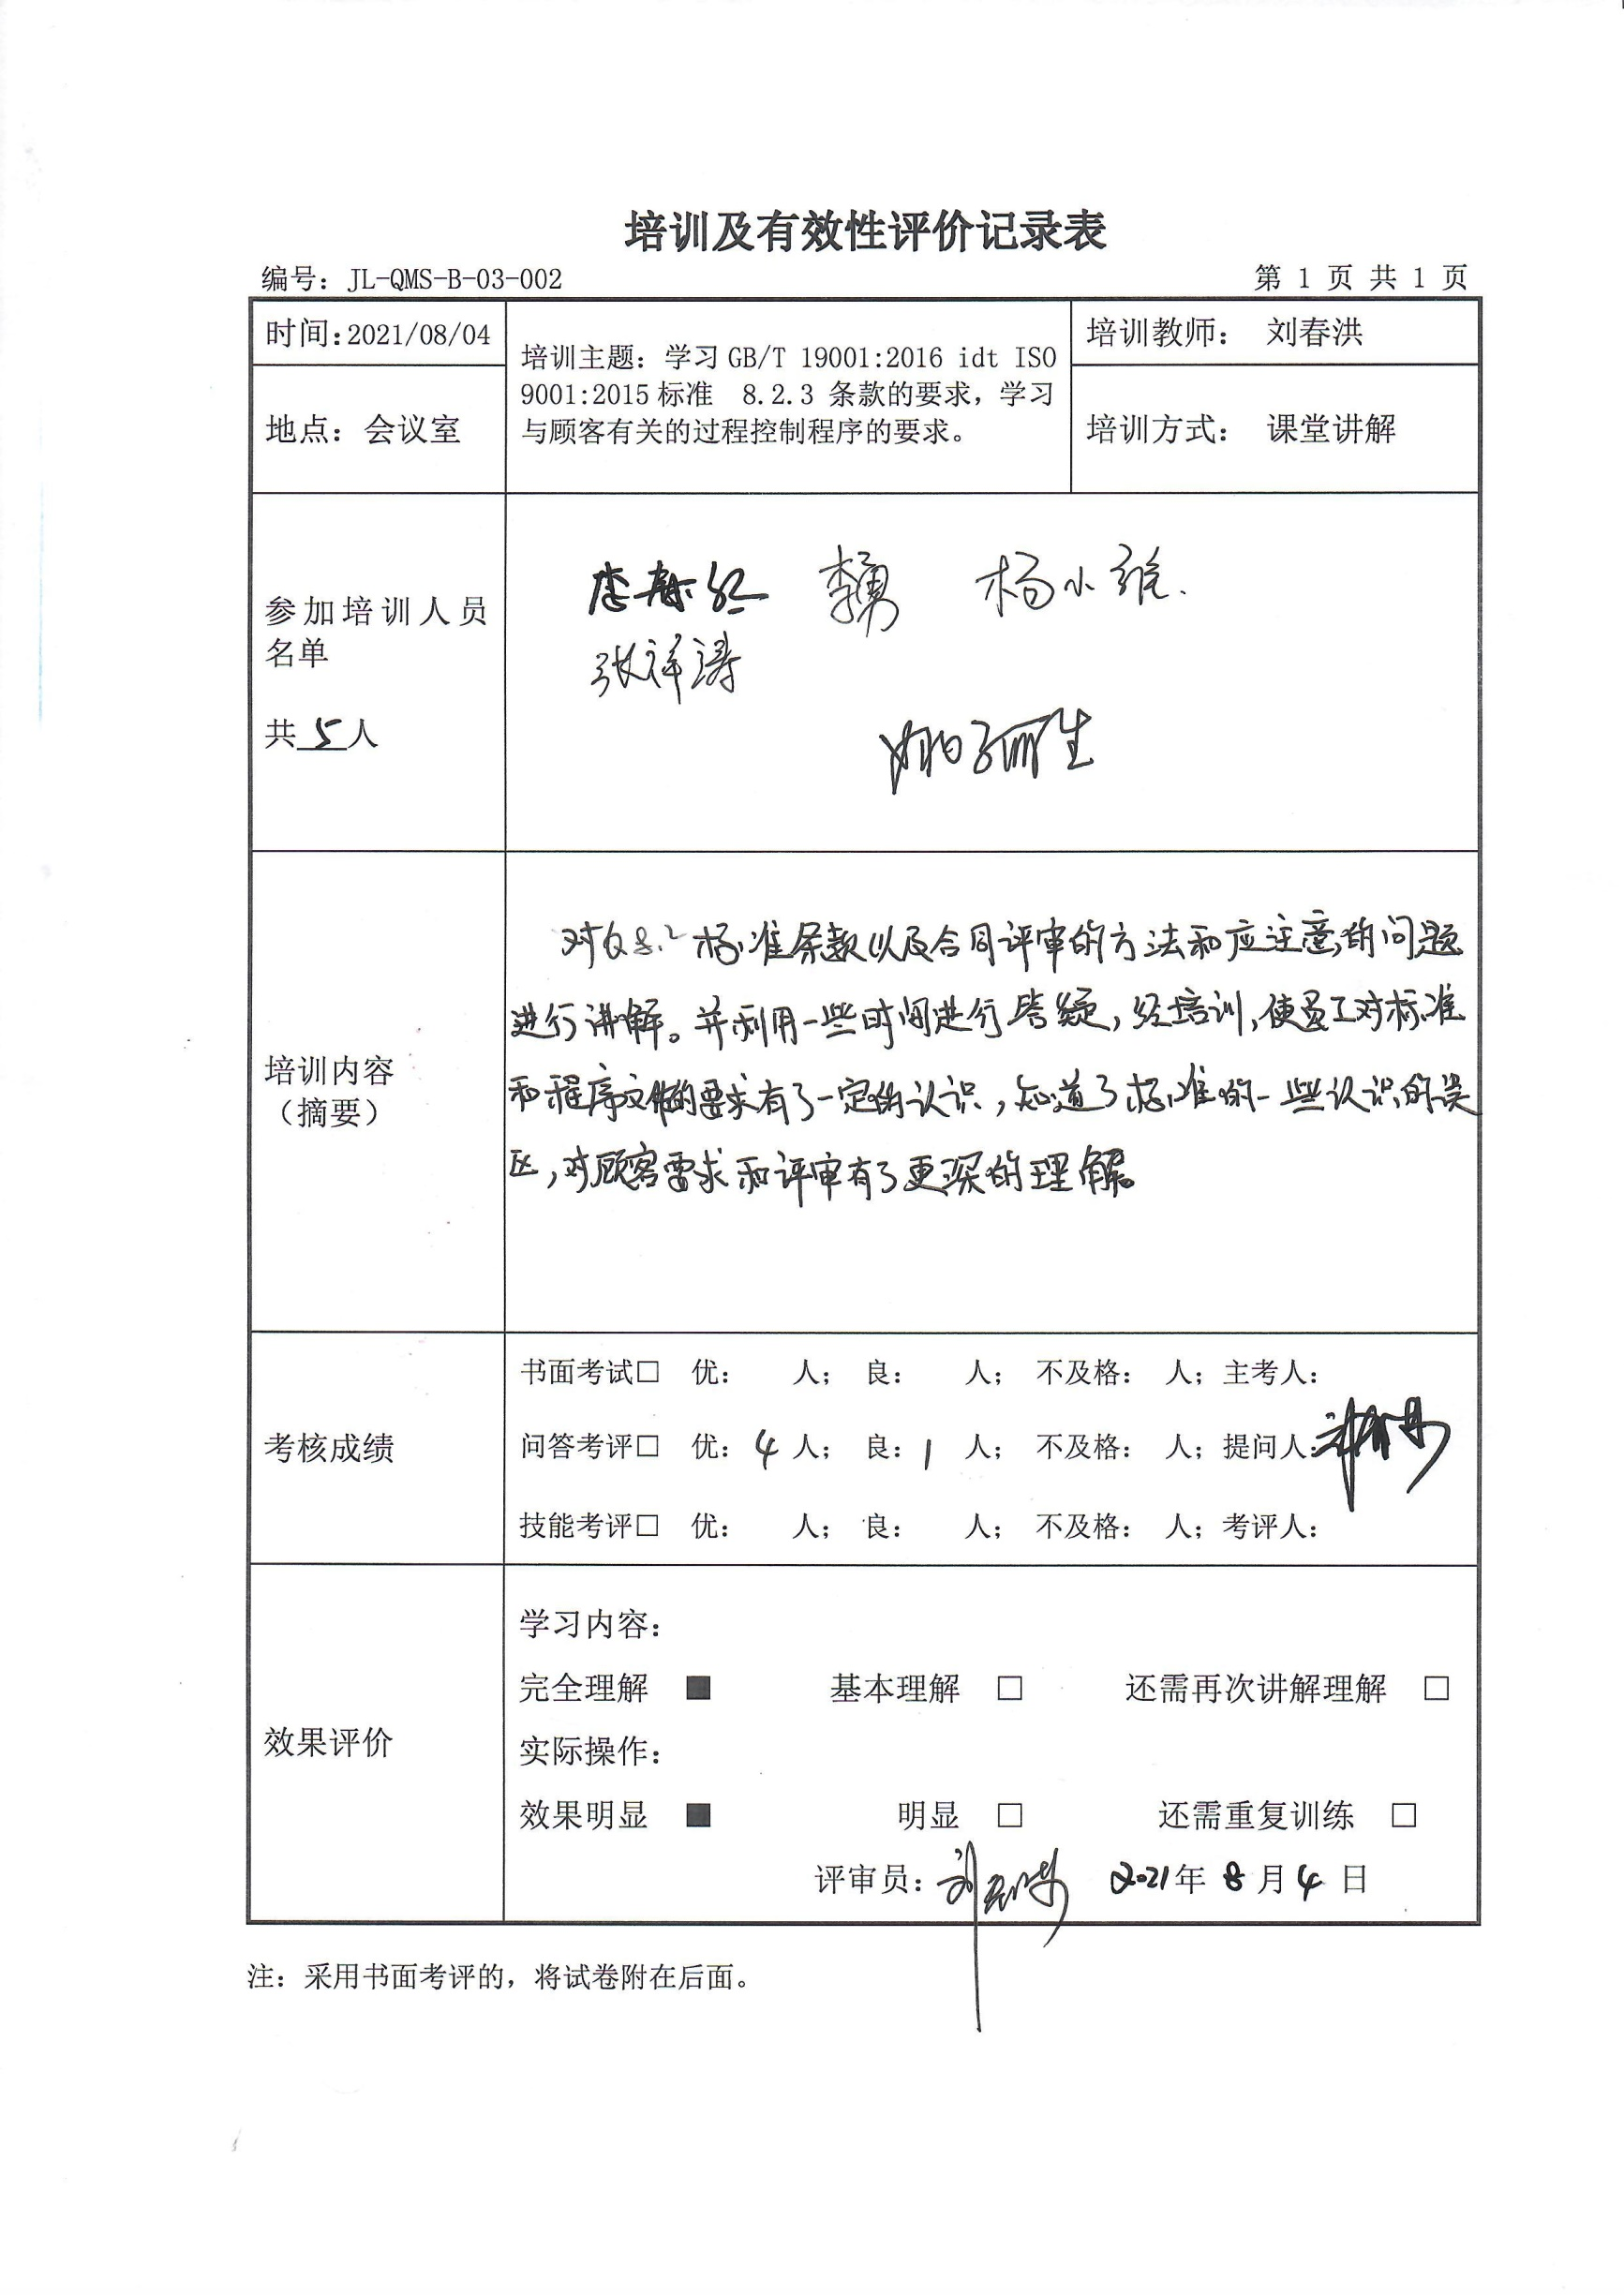 培训及有效性评价记录表
编号：JL-QMS-B-03-002 第 1 页 共 1 页
时间：2021/08/04
培训主题：学习 GB/T 19001:2016 idt ISO
9001:2015 标准 8.2.3 条款的要求，学习
与顾客有关的过程控制程序的要求。
培训教师： 刘春洪
地点：会议室
培训方式： 课堂讲解
参加培训人员
名单
共 5 人
李勇 杨小维
张祥涛
培训内容
（摘要）
对Q8.2标准条款以及合同评审的方法和应注意的问题
进行讲解。并利用一些时间进行答疑，经培训，使员工对标准
和程序文件的要求有了一定的认识，知道了标准的一些认识的误
区，对顾客要求和评审有了更深的理解。
考核成绩
书面考试□ 优： 人； 良： 人； 不及格： 人；主考人：
问答考评□ 优：4 人； 良：1 人； 不及格： 人；提问人：
技能考评□ 优： 人； 良： 人； 不及格： 人；考评人：
效果评价
学习内容：
完全理解 ■ 基本理解 □ 还需再次讲解理解 □
实际操作：
效果明显 ■ 明显 □ 还需重复训练 □
评审员： 2021年 8 月 4 日
注：采用书面考评的，将试卷附在后面。